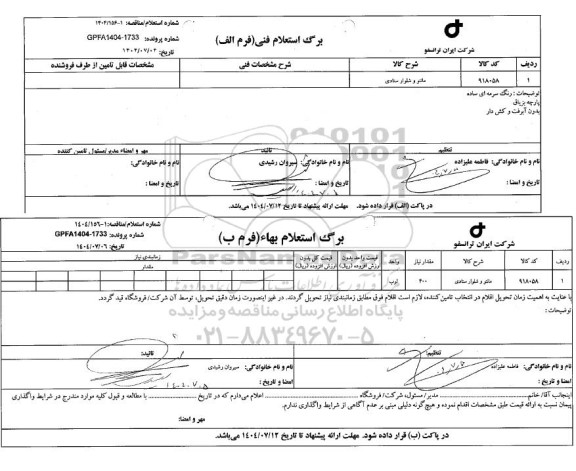 شماره استعلام/مناقصه: ۱۴۰۴/۱۵۶-۱
برگ استعلام فنی(فرم الف)
شماره پرونده: GPFA1404-1733
شرکت ایران ترانسفو
ردیف کد کالا شرح کالا شرح مشخصات فنی مشخصات قابل تامین از طرف فروشنده
۱ ۹۱۸۰۵۸ مانتو و شلوار ستادی
توضیحات : رنگ سرمه ای ساده
پارچه بژباق
بدون آبرفت و کش دار
تنظیم تائید مهر و امضاء مدیر/مسئول تامین کننده
نام و نام خانوادگی: فاطمه علیزاده نام و نام خانوادگی: سیروان رشیدی نام و نام خانوادگی:
تاریخ و امضا : تاریخ و امضا : تاریخ و امضا :
در پاکت (الف) قرار داده شود. مهلت ارائه پیشنهاد تا تاریخ ۱۴۰۴/۰۷/۱۲ می‌باشد.
شماره استعلام/مناقصه: ۱۴۰۴/۱۵۶-۱
برگ استعلام بهاء(فرم ب)
شماره پرونده: GPFA1404-1733
شرکت ایران ترانسفو
تاریخ: ۱۴۰۴/۰۷/۰۶
ردیف کد کالا شرح کالا مقدار نیاز واحد قیمت واحد بدون ارزش افزوده (ریال) قیمت کل بدون ارزش افزوده (ریال) زمانبندی نیاز
مقدار
۱ ۹۱۸۰۵۸ مانتو و شلوار ستادی ۴۰۰ ثوب
با عنایت به اهمیت زمان تحویل اقلام در انتخاب تامین کننده، لازم است اقلام فوق مطابق زمانبندی نیاز تحویل گردند. در غیر اینصورت زمان دقیق تحویل، توسط آن شرکت/فروشگاه قید گردد.
توضیحات:
پایگاه اطلاع رسانی مناقصه و مزایده
۰۲۱-۸۸۳۴۹۶۷۰-۵
تنظیم: تائید:
نام و نام خانوادگی: فاطمه علیزاده نام و نام خانوادگی: سیروان رشیدی
تاریخ و امضا : تاریخ و امضا :
اینجانب آقا/ خانم مدیر/ مسئول، شرکت/ فروشگاه اعلام می‌دارم که در تاریخ با مطالعه و قبول کلیه موارد مندرج در شرایط واگذاری
پیمان نسبت به ارائه قیمت طبق مشخصات اقدام نموده و هیچ‌گونه دلیلی مبنی بر عدم آگاهی از شرایط واگذاری ندارم.
مهر و امضا:
در پاکت (ب) قرار داده شود. مهلت ارائه پیشنهاد تا تاریخ ۱۴۰۴/۰۷/۱۲ می‌باشد.